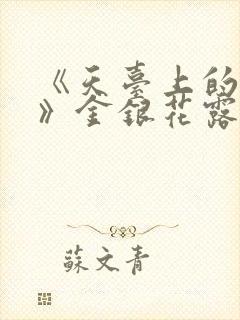 《天臺上的
》金銀花露
蘇文青